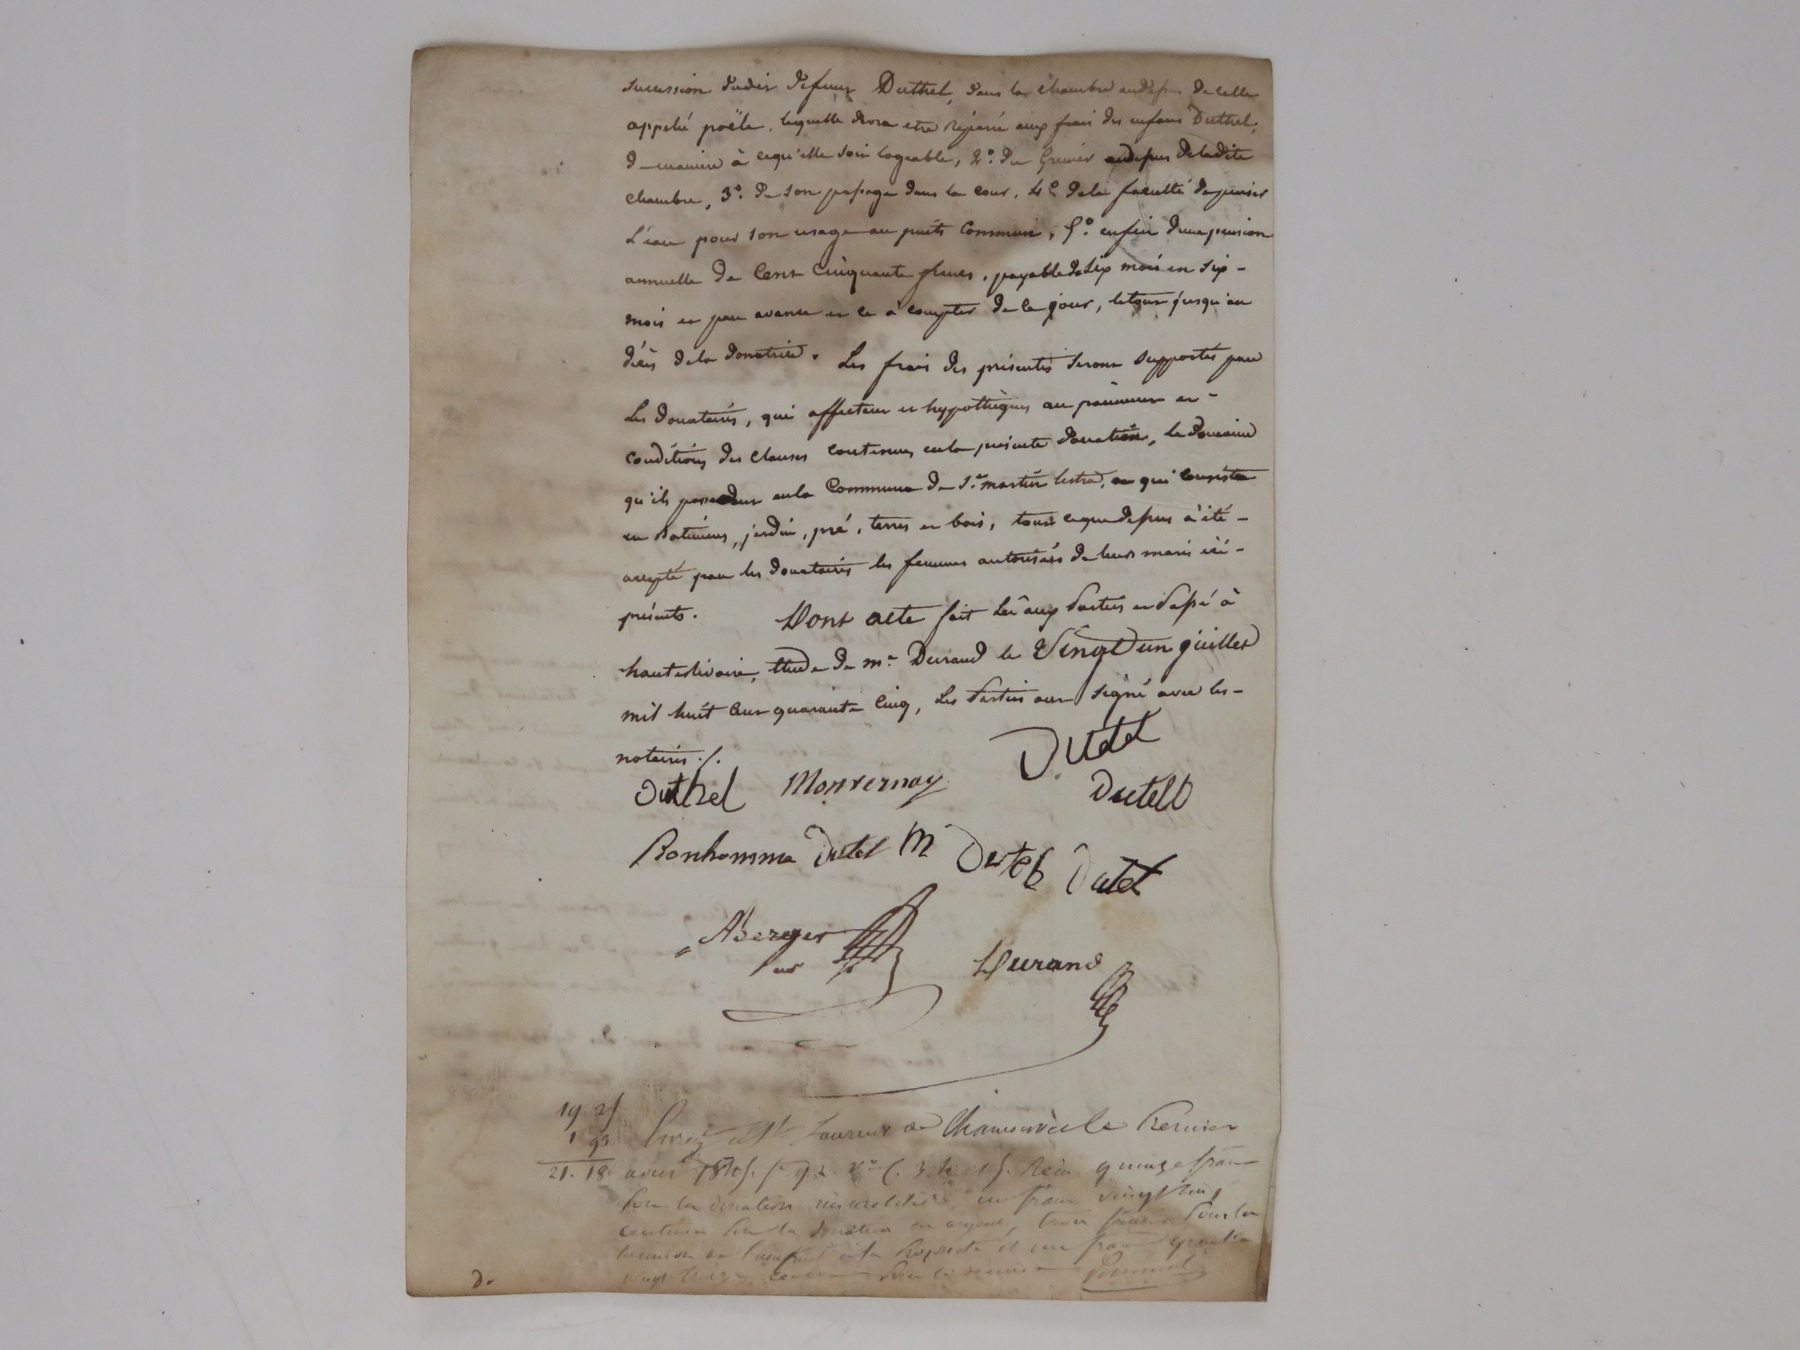 succession dudit defunt Duthel, dans la chambre audessus de celle
appelé poële, laquelle devra etre réparé aux frais des enfans Duthel,
de maniere à cequ'elle soit logeable, 2° du Grenier audessus de ladite
chambre, 3° de son passage dans la cour, 4° de la faculté de puiser
l'eau pour son usage au puits commun, 5° enfin d'une pension
annuelle de cent cinquante francs, payable de six mois en six-
mois et par avance et ce à compter de ce jour, le tout jusqu'au
décès de la donatrice. Les frais des présentes seront supportés par
les donataires, qui affectent et hypothèques au paiement et-
conditions des clauses contenues en la présente donation, le domaine
qu'ils possedent en la commune de St martin lestra, et qui consiste
en batimens, jardin, pré, terres et bois, tout ceque dessus à été-
accepté par les donataires les femmes autorisées de leurs maris ici-
présents. Dont acte fait Lu aux Parties et Passé à
hauterivoire, Etude de me Durand le Vingt un juillet
mil huit cent quarante cinq, les Parties ont signé avec les-
notaires ./.
Duthel Monvernay Dutel
Dutell
Bonhomme Dutel M Dutel Dutel
Aberger Durand
nre
19 25
1 93
21. 18
St Laurent de Chamousset le Premier
aout 1845 f° 92 v° c. 3, 4 et 5. Reçu quinze francs
pour la donation immobilière, un franc vingt cinq
centimes pour la donation en argent, trois francs pour la
réunion de l'usufruit à la Propriété et un franc quatre
vingt treize centimes pour le decime
D.